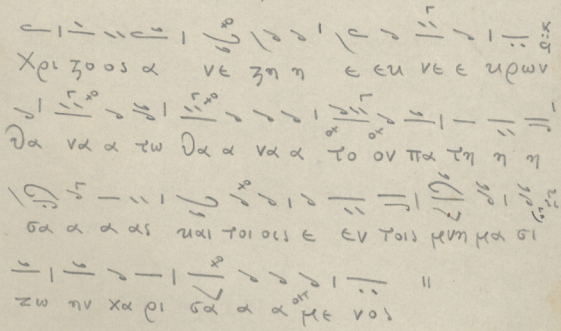 Χρι ζο ος α νε ζη η ε εκ νε ε κρων
θα να α τω θα α να α το ον πα τη η η
σα α α ας και τοι οις ε εν τοις μνη μα σι
ζω ην χα ρι σα α α με νος